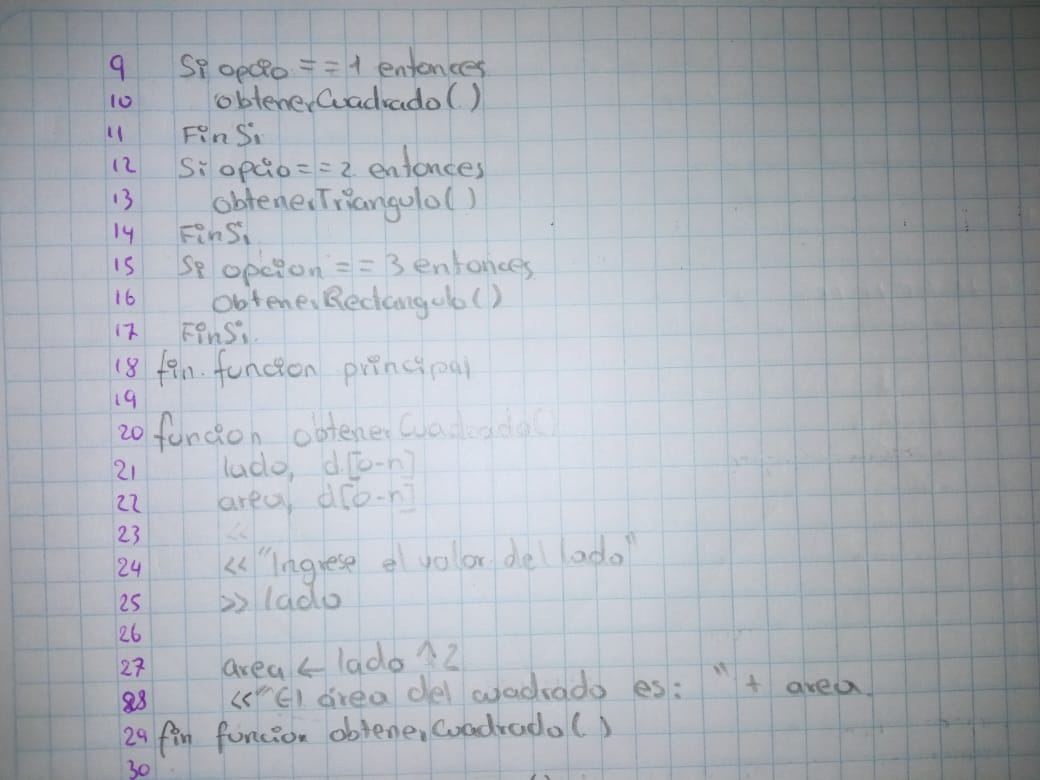 9 Si opcio == 1 entonces
10 obtenerCuadrado()
11 FinSi
12 Si opcio == 2 entonces
13 obtenerTriangulo()
14 FinSi
15 Si opcion == 3 entonces
16 obtenerRectangulo()
17 FinSi.
18 fin funcion principal
19
20 funcion obtenerCuadrado()
21 lado, d[0-n]
22 area, d[0-n]
23 <<
24 << "Ingrese el valor del lado"
25 >> lado
26
27 area ← lado ↑2
28 << "El área del cuadrado es: " + area.
29 fin funcion obtenerCuadrado()
30